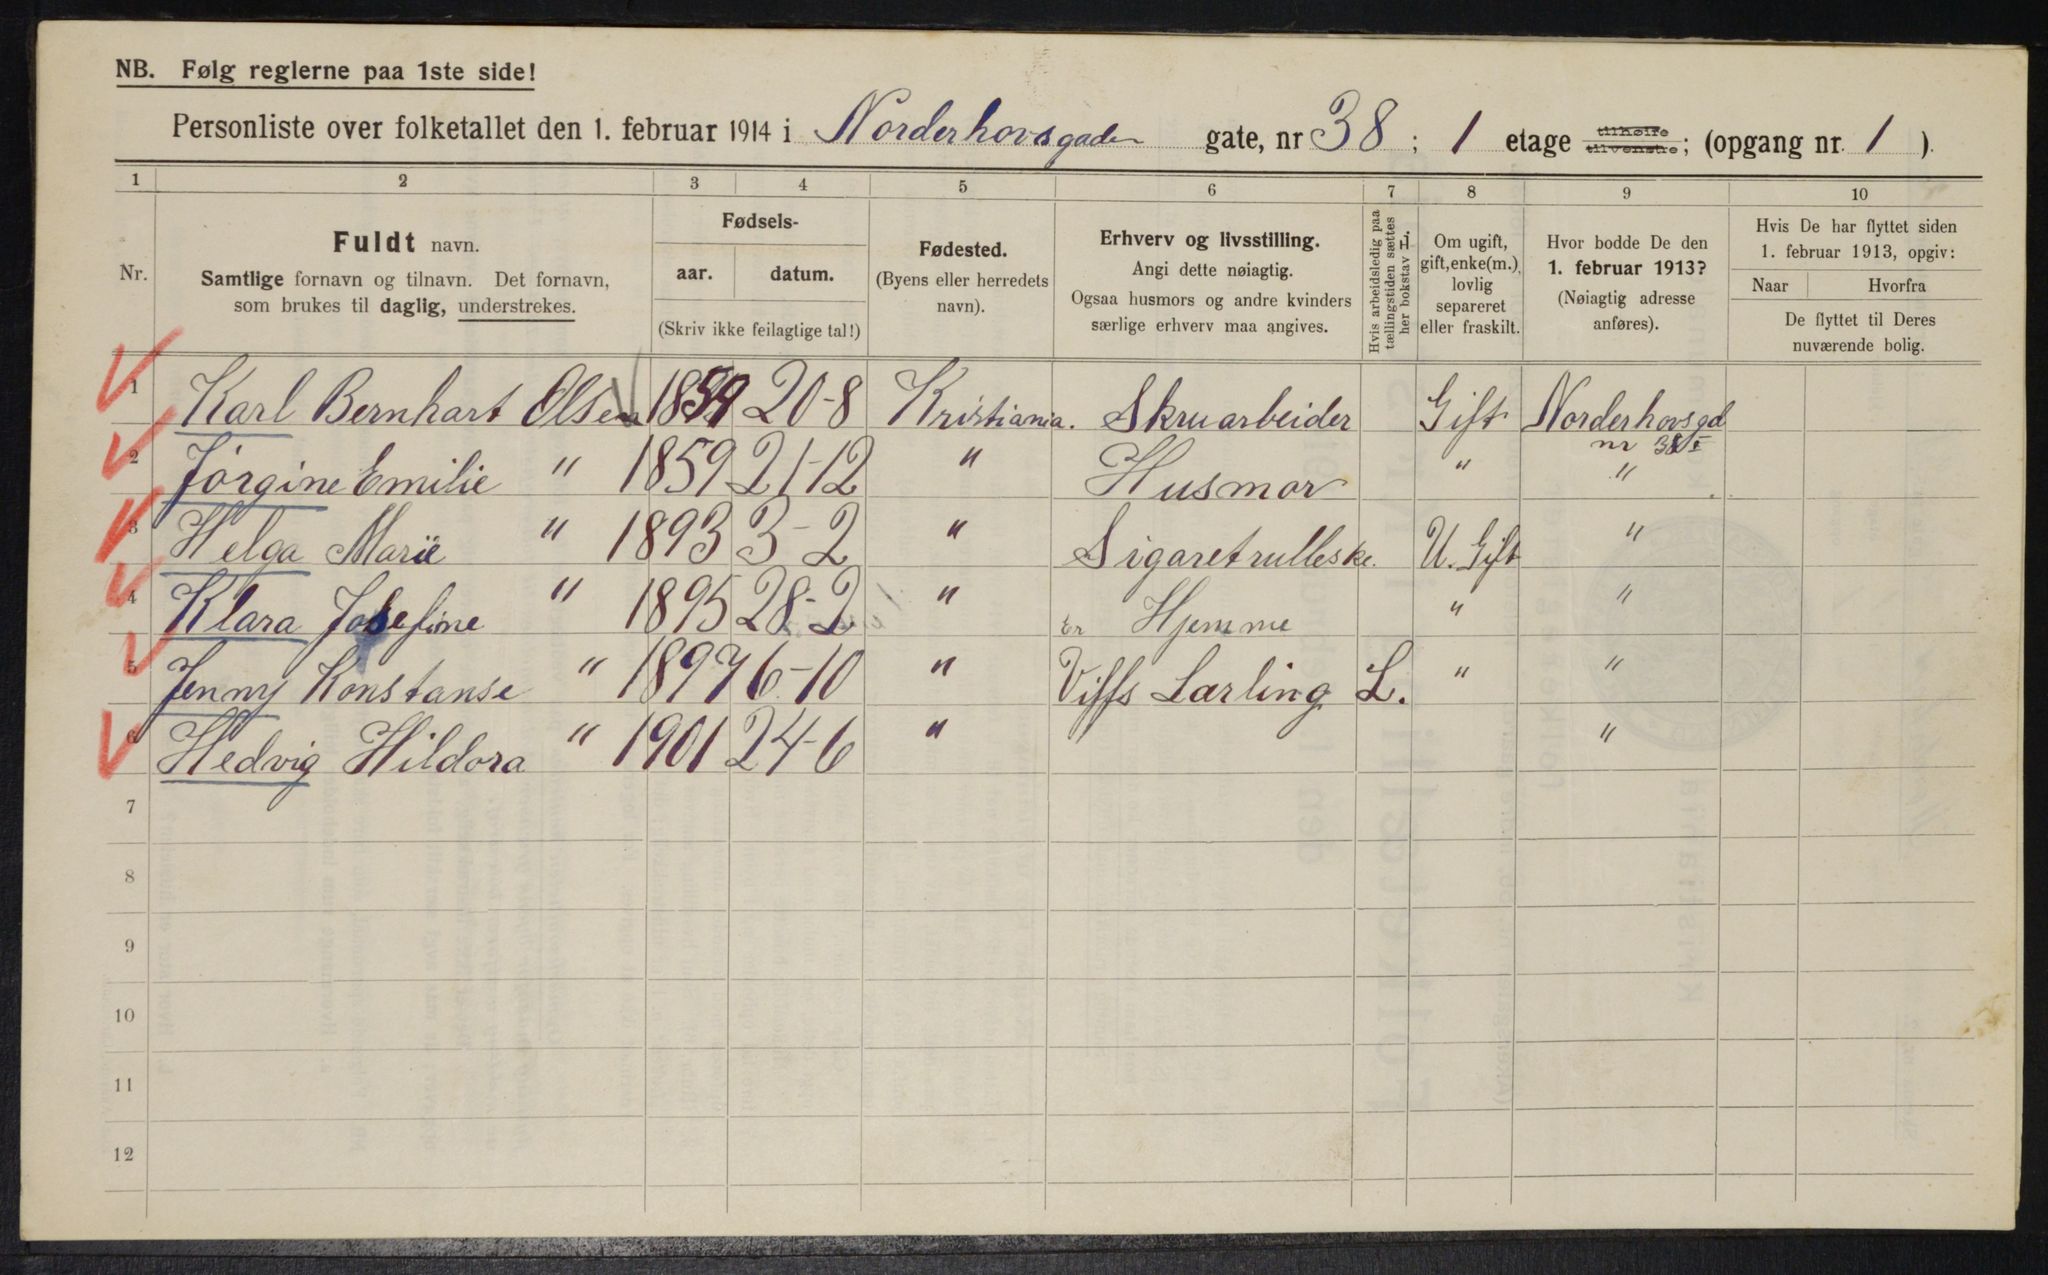 NB. Følg reglerne paa 1ste side!
Personliste over folketallet den 1. februar 1914 i Norderhovsgaden gate, nr 38 ; 1 etage tilhøire tilvenstre; (opgang nr. 1 ).
1 2 3 4 5 6 7 8 9 10
Nr.
Fuldt navn.
Samtlige fornavn og tilnavn. Det fornavn,
som brukes til daglig, understrekes.
Fødsels-
aar. datum.
(Skriv ikke feilagtige tal!)
Fødested.
(Byens eller herredets
navn).
Erhverv og livsstilling.
Angi dette nøiagtig.
Ogsaa husmors og andre kvinders
særlige erhverv maa angives.
Hvis arbeidsledig paa
tællingstiden sættes
her bokstav L.
Om ugift,
gift, enke(m.),
lovlig
separeret
eller fraskilt.
Hvor bodde De den
1. februar 1913?
(Nøiagtig adresse
anføres).
Hvis De har flyttet siden
1. februar 1913, opgiv:
Naar Hvorfra
De flyttet til Deres
nuværende bolig.
1 Karl Bernhart Olsen 1859 20-8 Kristiania. Skruarbeider Gift Norderhovsgd
nr 38 I
2 Jørgine Emilie " 1859 21-12 " Husmor " "
3 Helga Marie " 1893 3-2 " Sigaretrulleske. U. Gift "
4 Klara Josefine " 1895 28-2 " Er Hjemme " "
5 Jenny Konstanse " 1897 6-10 " Viffs Larling L. " "
6 Hedvig Hildora " 1901 24-6 " "
7
8
9
10
11
12